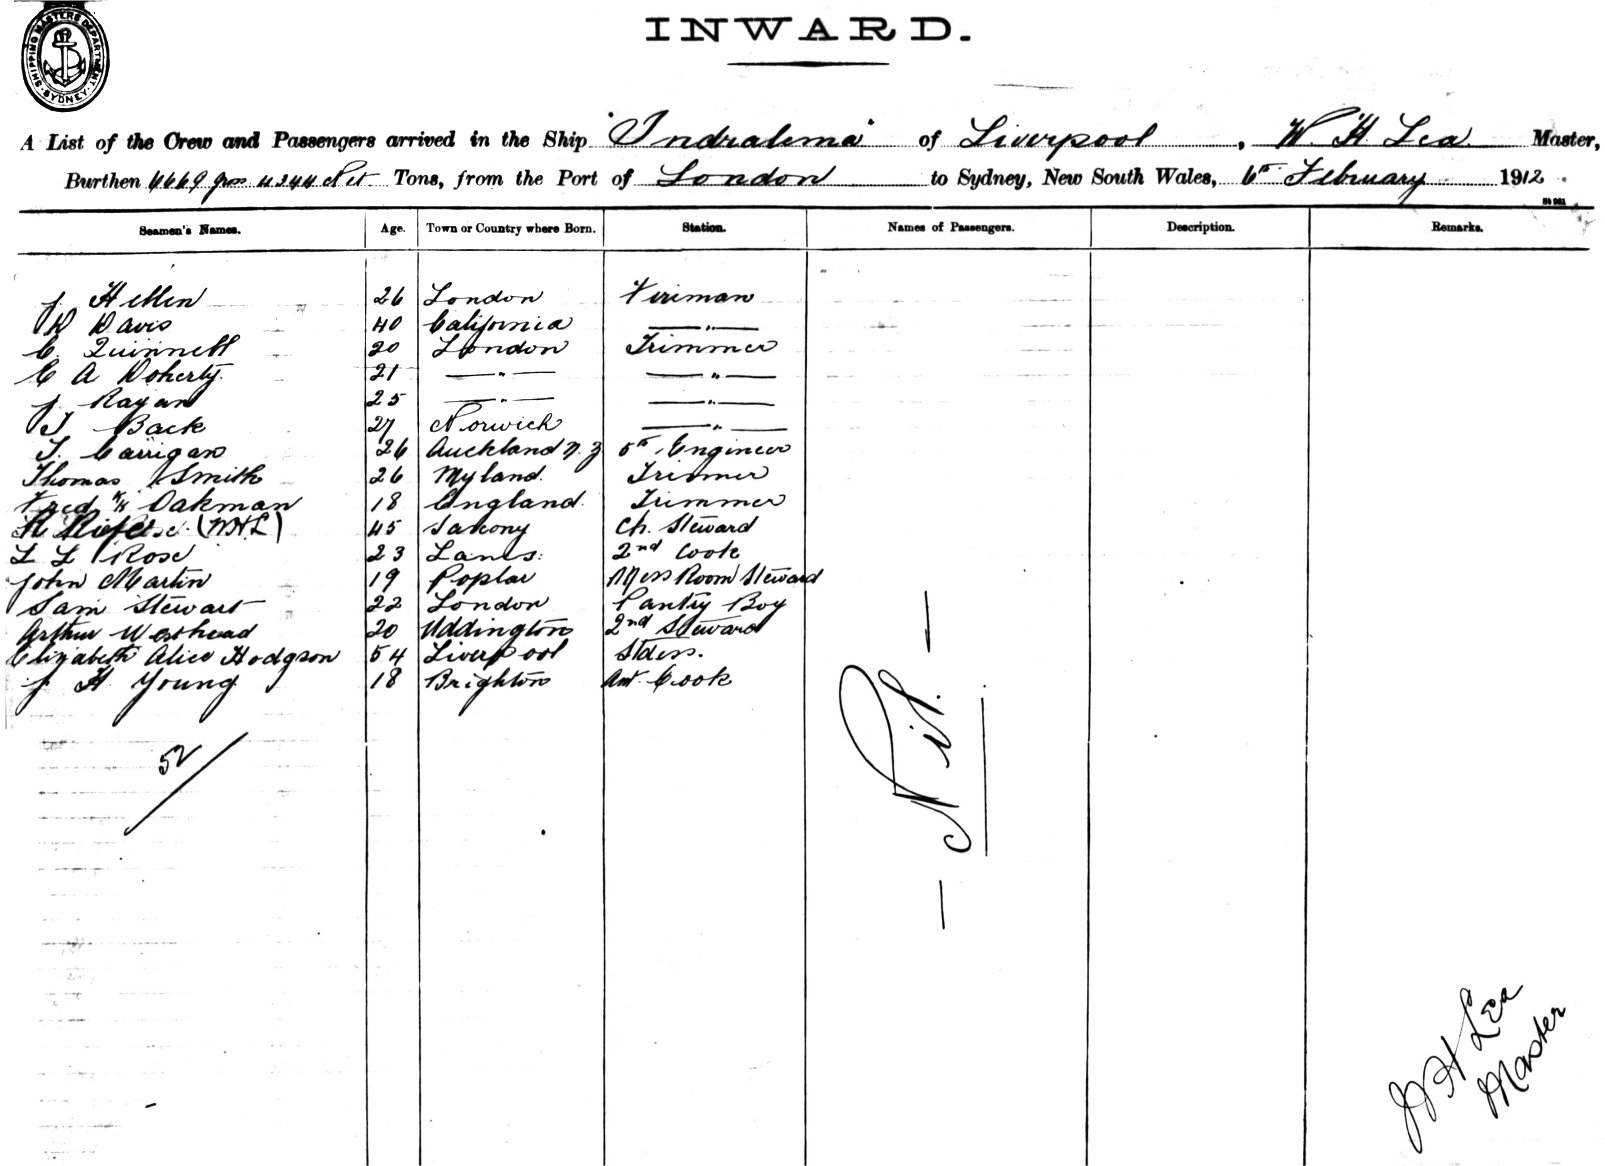 SHIPPING MASTERS DEPARTMENT. SYDNEY.
INWARD.
A List of the Crew and Passengers arrived in the Ship "Indralema" of Liverpool, W. H. Lea Master,
Burthen 6669 gross 4344 Net Tons, from the Port of London to Sydney, New South Wales, 6th February 1912.
Seamen's Names. Age. Town or Country where Born. Station. Names of Passengers. Description. Remarks.
J. Hillen 26 London Fireman
W Davis 40 California —"—
C. Quinnell 20 London Trimmer
C A Doherty. 21 —"— —"—
J. Rayan 25 —"— —"—
T Back 27 Norwich —"—
T. Carrigan 26 Auckland N. Z 5th Engineer
Thomas Smith 26 Myland. Trimmer
Fred Oakman 18 England. Trimmer
(WHL) 45 Saxony Ch. Steward
L L Rose 23 Lancs. 2nd Cook
John Martin 19 Poplar Mess Room Steward
Sam Stewart 22 London Pantry Boy
Arthur Westhead 20 Uddington 2nd Steward
Elizabeth Alice Hodgson 54 Liverpool Stdess.
J H Young 18 Brighton Ast. Cook
52
— Nil. —
W H Lea
Master